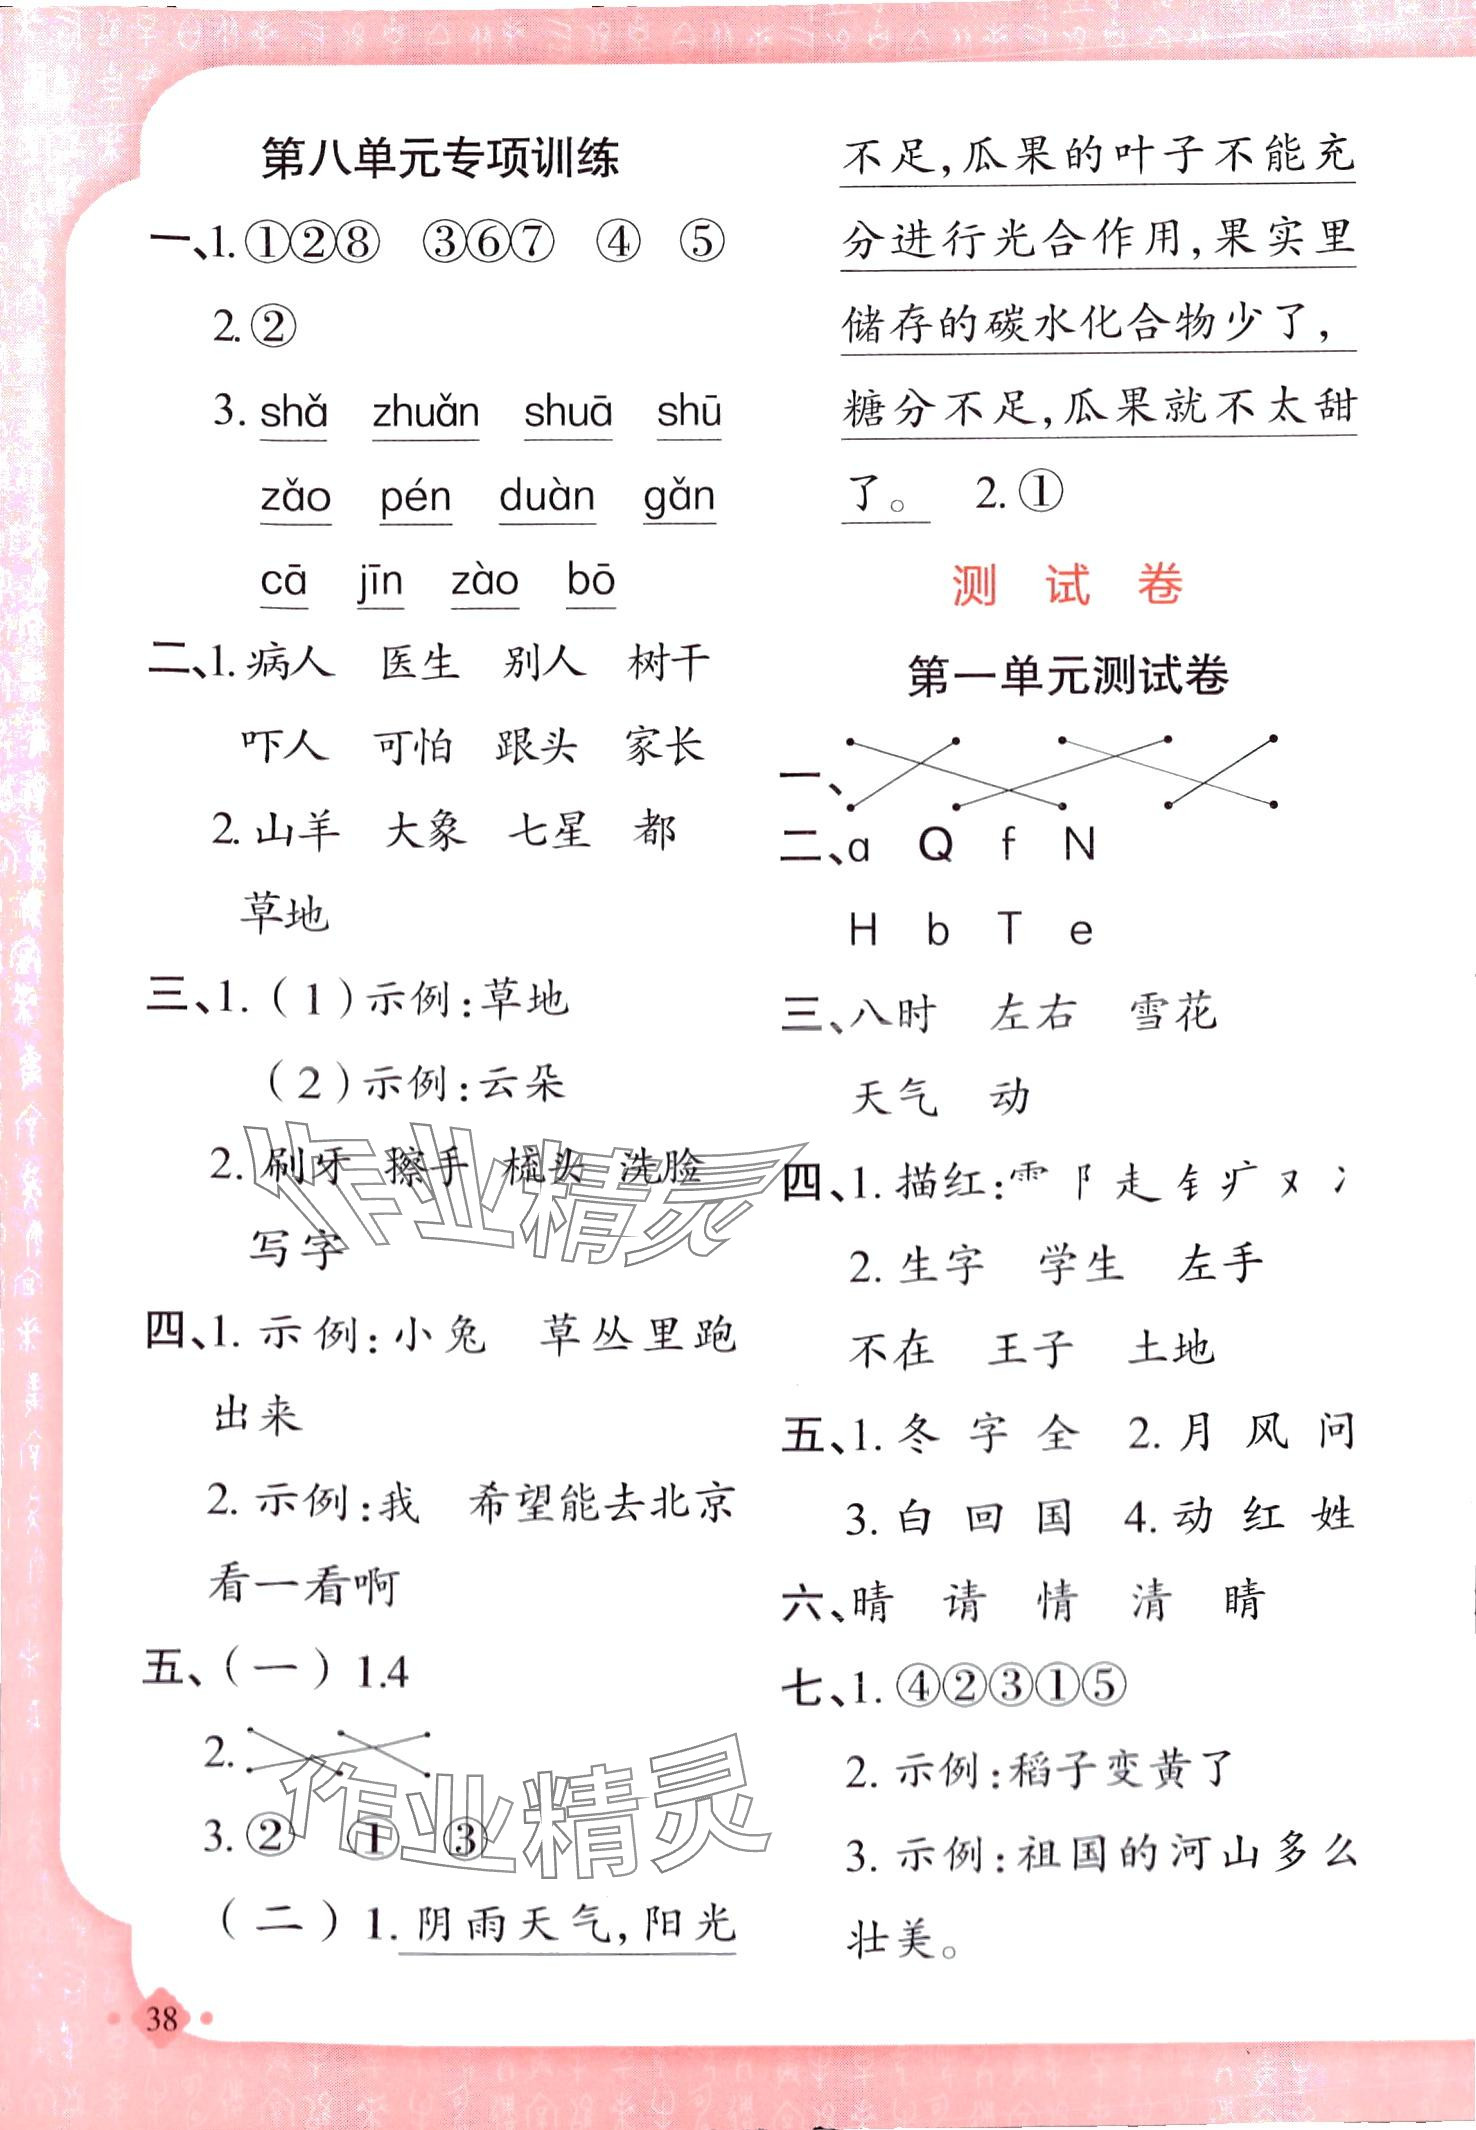 第八单元专项训练
一、1.①②⑧ ③⑥⑦ ④ ⑤
2.②
3. shǎ zhuǎn shuā shū
zǎo pén duàn gǎn
cā jīn zào bō
二、1.病人 医生 别人 树干
吓人 可怕 跟头 家长
2.山羊 大象 七星 都
草地
三、1.(1)示例:草地
(2)示例:云朵
2.刷牙 擦手 梳头 洗脸
写字
四、1.示例:小兔 草丛里跑
出来
2.示例:我 希望能去北京
看一看啊
五、(一)1.4
2.
3.② ① ③
(二)1.阴雨天气,阳光
38
不足,瓜果的叶子不能充
分进行光合作用,果实里
储存的碳水化合物少了,
糖分不足,瓜果就不太甜
了。 2.①
测 试 卷
第一单元测试卷
一、
二、a Q f N
H b T e
三、八时 左右 雪花
天气 动
四、1.描红:⻗ 阝 走 钅 疒 又 冫
2.生字 学生 左手
不在 王子 土地
五、1.冬 字 全 2.月 风 问
3.白 回 国 4.动 红 姓
六、晴 请 情 清 睛
七、1.④②③①⑤
2.示例:稻子变黄了
3.示例:祖国的河山多么
壮美。
作业精灵
作业精灵